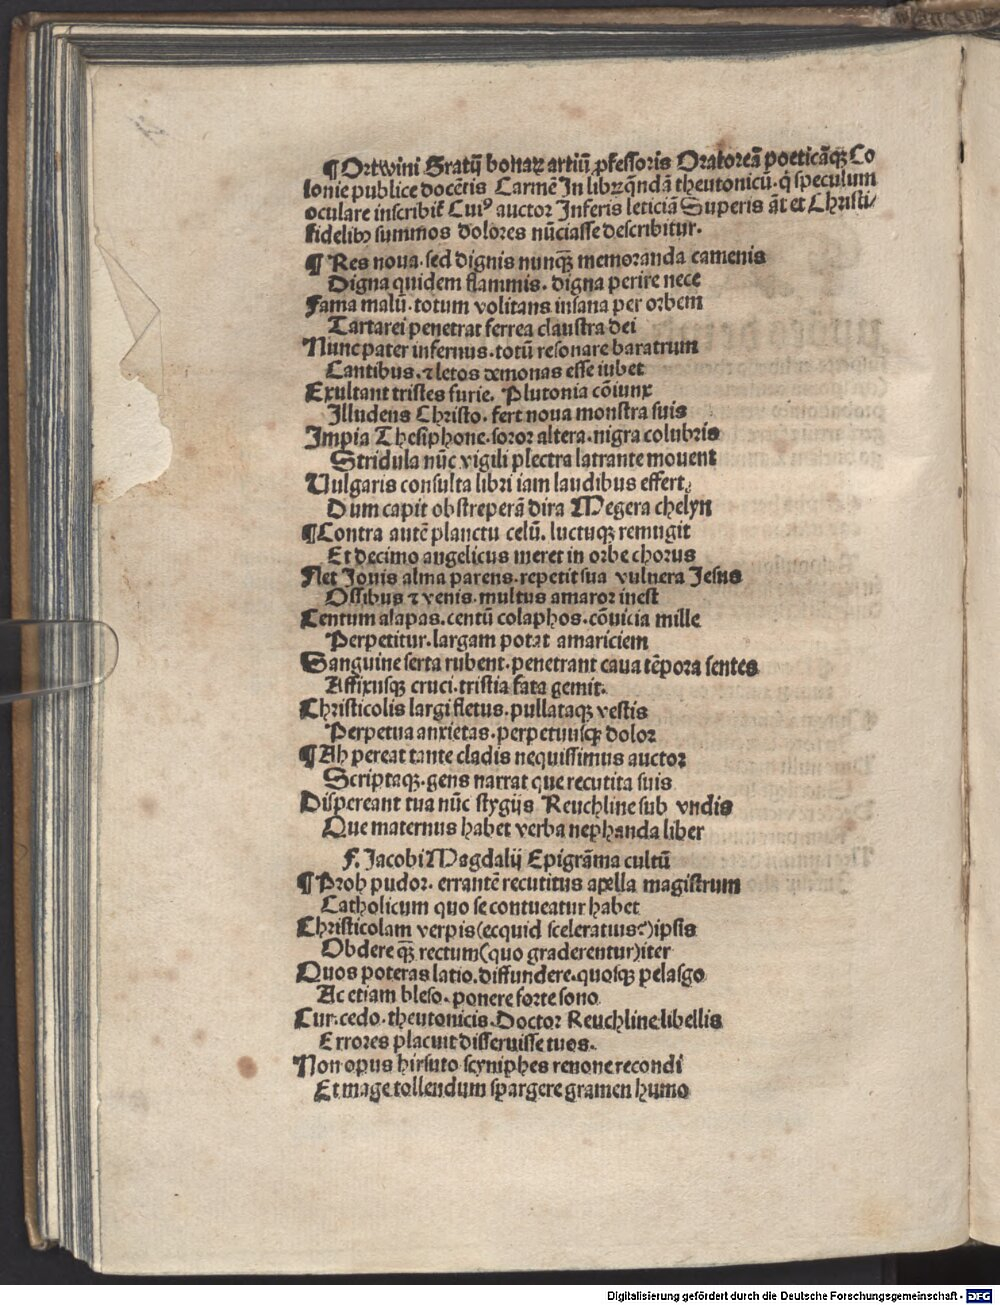 ¶Ortwini Gratij bonaꝝ artiū ꝓfessoris Oratoreā poeticāqꝫ Co
lonie publice docētis Carmē In librꝫ qndā theutonicū. q speculum
oculare inscribit Cuiꝰ auctor Inferis leticiā Superis āt et Christi⸗
fidelibꝫ summos dolores nūciasse describitur.
¶ Res noua. sed dignis nunqꝫ memoranda camenis
Digna quidem flammis. digna perire nece
Fama malū. totum volitans insana per orbem
Tartarei penetrat ferrea claustra dei
Nunc pater infernus. totū resonare baratrum
Cantibus. ⁊ letos demonas esse iubet
Exultant tristes furie. Plutonia cōiunx
Illudens Christo. fert noua monstra suis
Impia Thesiphone. soror altera. nigra colubris
Stridula nūc vigili plectra latrante mouent
Uulgaris consulta libri iam laudibus effert,
Dum capit obstreperā dira Megera chelyn
¶Contra autē planctu celū. luctuqꝫ remugit
Et decimo angelicus meret in orbe chorus
Flet Iouis alma parens. repetit sua vulnera Jesus
Ossibus ⁊ venis. multus amaror inest
Centum alapas. centū colaphos. cōuicia mille
Perpetitur. largam potat amariciem
Sanguine serta rubent. penetrant caua tēpora sentes
Affixusqꝫ cruci. tristia fata gemit.
Christicolis largi fletus. pullataqꝫ vestis
Perpetua anxietas. perpetuusqꝫ dolor
¶Ah pereat tante cladis nequissimus auctor
Scriptaqꝫ. gens narrat que recutita suis
Dispereant tua nūc stygijs Reuchline sub vndis
Que maternus habet verba nephanda liber
F. Jacobi Magdalij Epigrāma cultū
¶Proh pudor. errantē recutitus apella magistrum
Catholicum quo se contueatur habet
Christicolam verpis(ecquid sceleratius?)ipsis
Obdere qꝫ rectum(quo graderentur)iter
Quos poteras latio. diffundere. quosqꝫ pelasgo
Ac etiam bleso. ponere forte sono
Cur. cedo. theutonicis. Doctor Reuchline libellis
Errores placuit disseruisse tuos.
Non opus hirsuto scyniphes renone recondi
Et mage tollendum spargere gramen humo
Digitalisierung gefördert durch die Deutsche Forschungsgemeinschaft - DFG